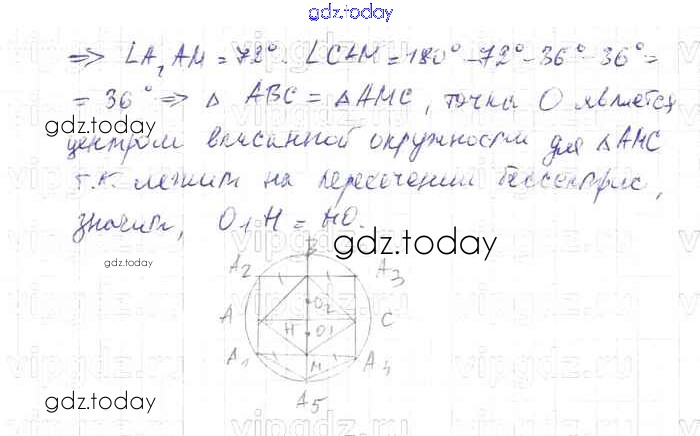 gdz.today
=> ∠A₁AM = 72°. ∠CAM = 180° - 72° - 36° - 36° =
= 36° => △ ABC = △ AMC, точка O является
gdz.today
центром вписанной окружности для △ AMC
т.к. лежит на пересечении биссектрис,
значит, O₁H = HO.
gdz.today
B
gdz.today A₂ A₃
O₂
A H O₁ C
A₁ M A₄
gdz.today A₅